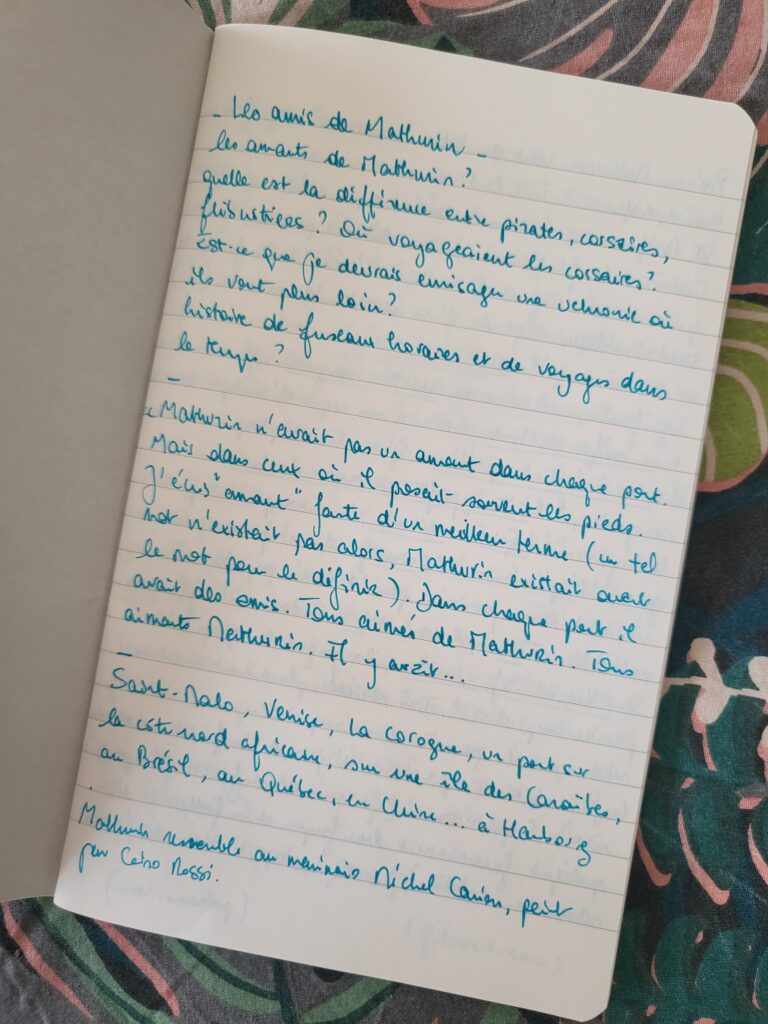 - Les amis de Mathurin -
les amants de Mathurin ?
quelle est la différence entre pirates, corsaires,
flibustiers ? Où voyageaient les corsaires ?
Est-ce que je devrais envisager une uchronie où
ils vont plus loin ?
histoire de fuseaux horaires et de voyages dans
le temps ?
-
"Mathurin n'avait pas un amant dans chaque port.
Mais dans ceux où il posait souvent les pieds.
J'écris "amant" faute d'un meilleur terme (un tel
mot n'existait pas alors, Mathurin existait avant
le mot pour le définir). Dans chaque port il
avait des amis. Tous aimés de Mathurin. Tous
aimants Mathurin. Il y avait...
-
Saint-Malo, Venise, La Corogne, un port sur
la côte nord africaine, sur une île des Caraïbes,
au Brésil, au Québec, en Chine... à Hambourg
.
Mathurin ressemble au marinaio Michel
par Rossi.